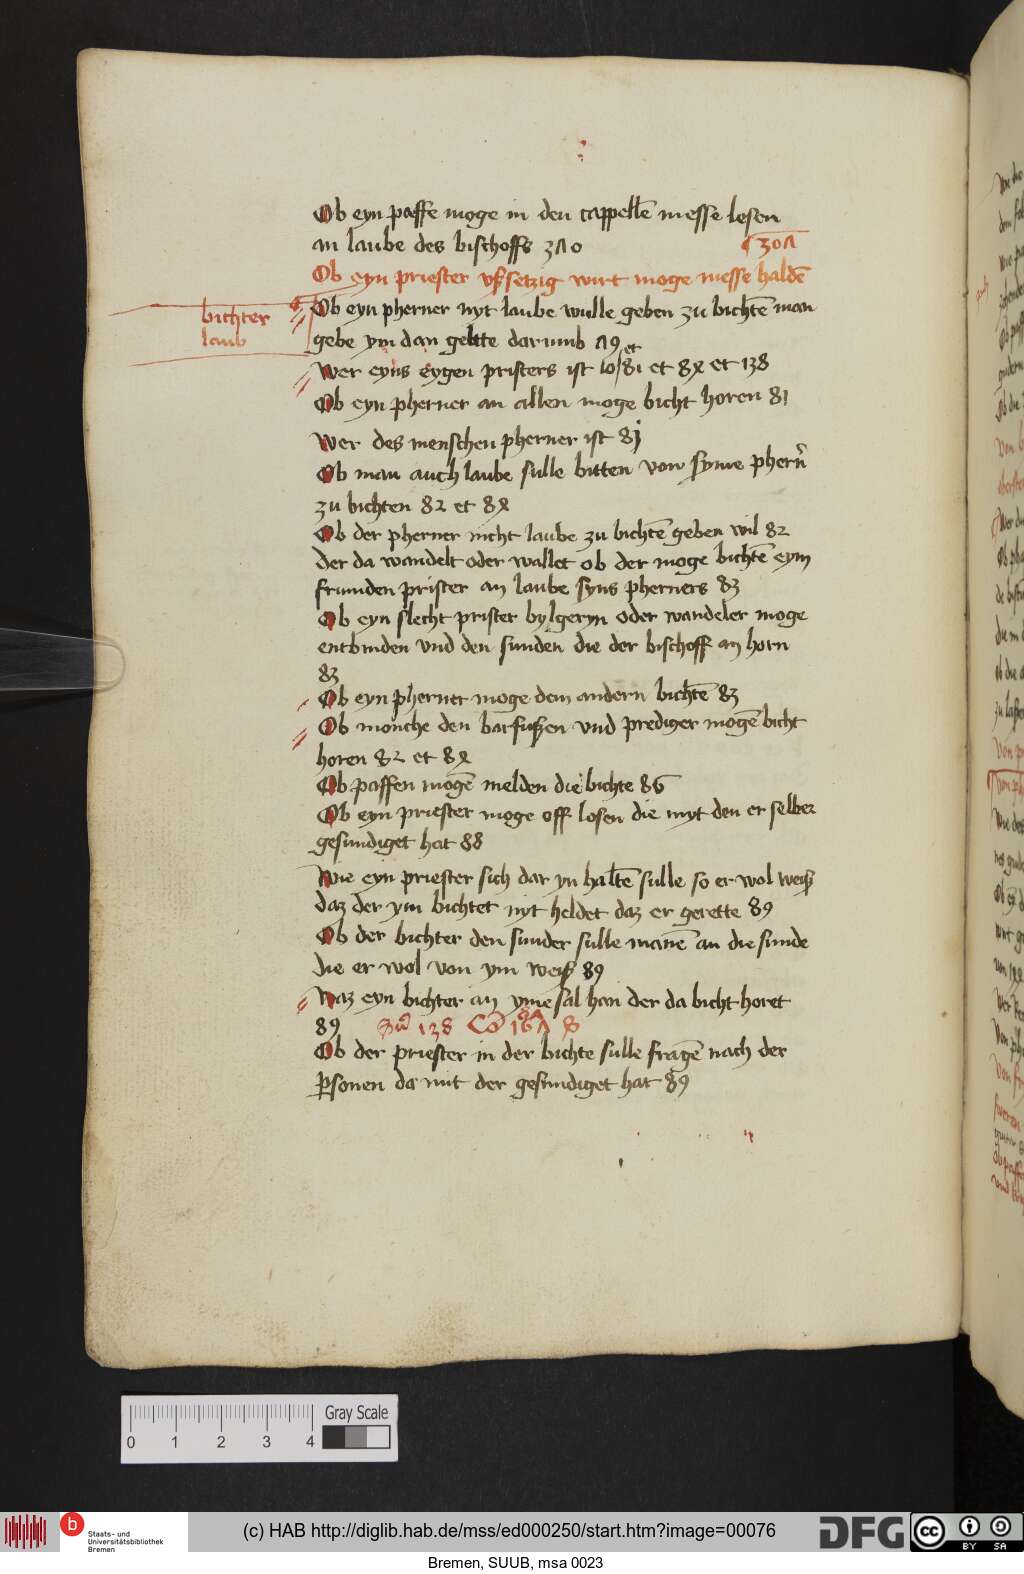 Ob eyn paffe moge in den cappellē messe lesen
an laube des bischoffs 3Λ0
30Λ
Ob eyn priester vßsetzig wirt moge messe haldē
bichter
laub
Ob eyn pherner nyt laube wulle geben zu bichtē man
gebe ym dan geltte darumb Λ9
Wer eyns eygen pristers ist 10 81 et 8ꝝ et 138
et
Ob eyn pherner an allen moge bicht horen 81
Wer des menschen pherner ist 8j
Ob man auch laube sulle bitten von syme phern̄
zu bichten 82 et 8ꝝ
Ob der pherner nicht laube zu bichtē geben wil 82
Der da wandelt oder wallet ob der moge bichtē eym
fromden prister an laube syns pherners 83
Ob eyn slecht prister bylgeryn oder wandeler moge
entbinden vnd den sunden die der bischoff an horn
83
Ob eyn pherner moge dem andern bichtē 83
Ob monche den barfußen vnd prediger mogē bicht
horen 82 et 8ꝝ
Ob paffen mogē melden die bichte 86
Ob eyn priester moge off losen die myt den er selber
gesundiget hat 88
Wie eyn priester sich dar yn haltē sulle so er wol weiß
daz der ym bichtet nyt heldet daz er gerette 89
Ob der bichter den sunder sulle manē an die sunde
die er wol von ym weiß 89
Waz eyn bichter an yme sal han der da bicht horet
89 138
Ob der priester in der bichte sulle fragē nach der
ꝑsonen da mit der gesundiget hat 89
0 1 2 3 4
Gray Scale
b Staats- und
Universitätsbibliothek
Bremen
(c) HAB http://diglib.hab.de/mss/ed000250/start.htm?image=00076
DFG
cc BY SA
Bremen, SUUB, msa 0023